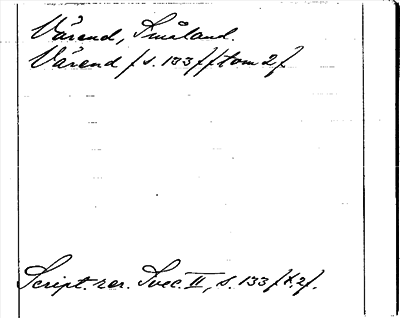 Värend, Småland.
Värend /s. 133//tom 2/.
Script. rer. Svec. II, s. 133 /t. 2/.